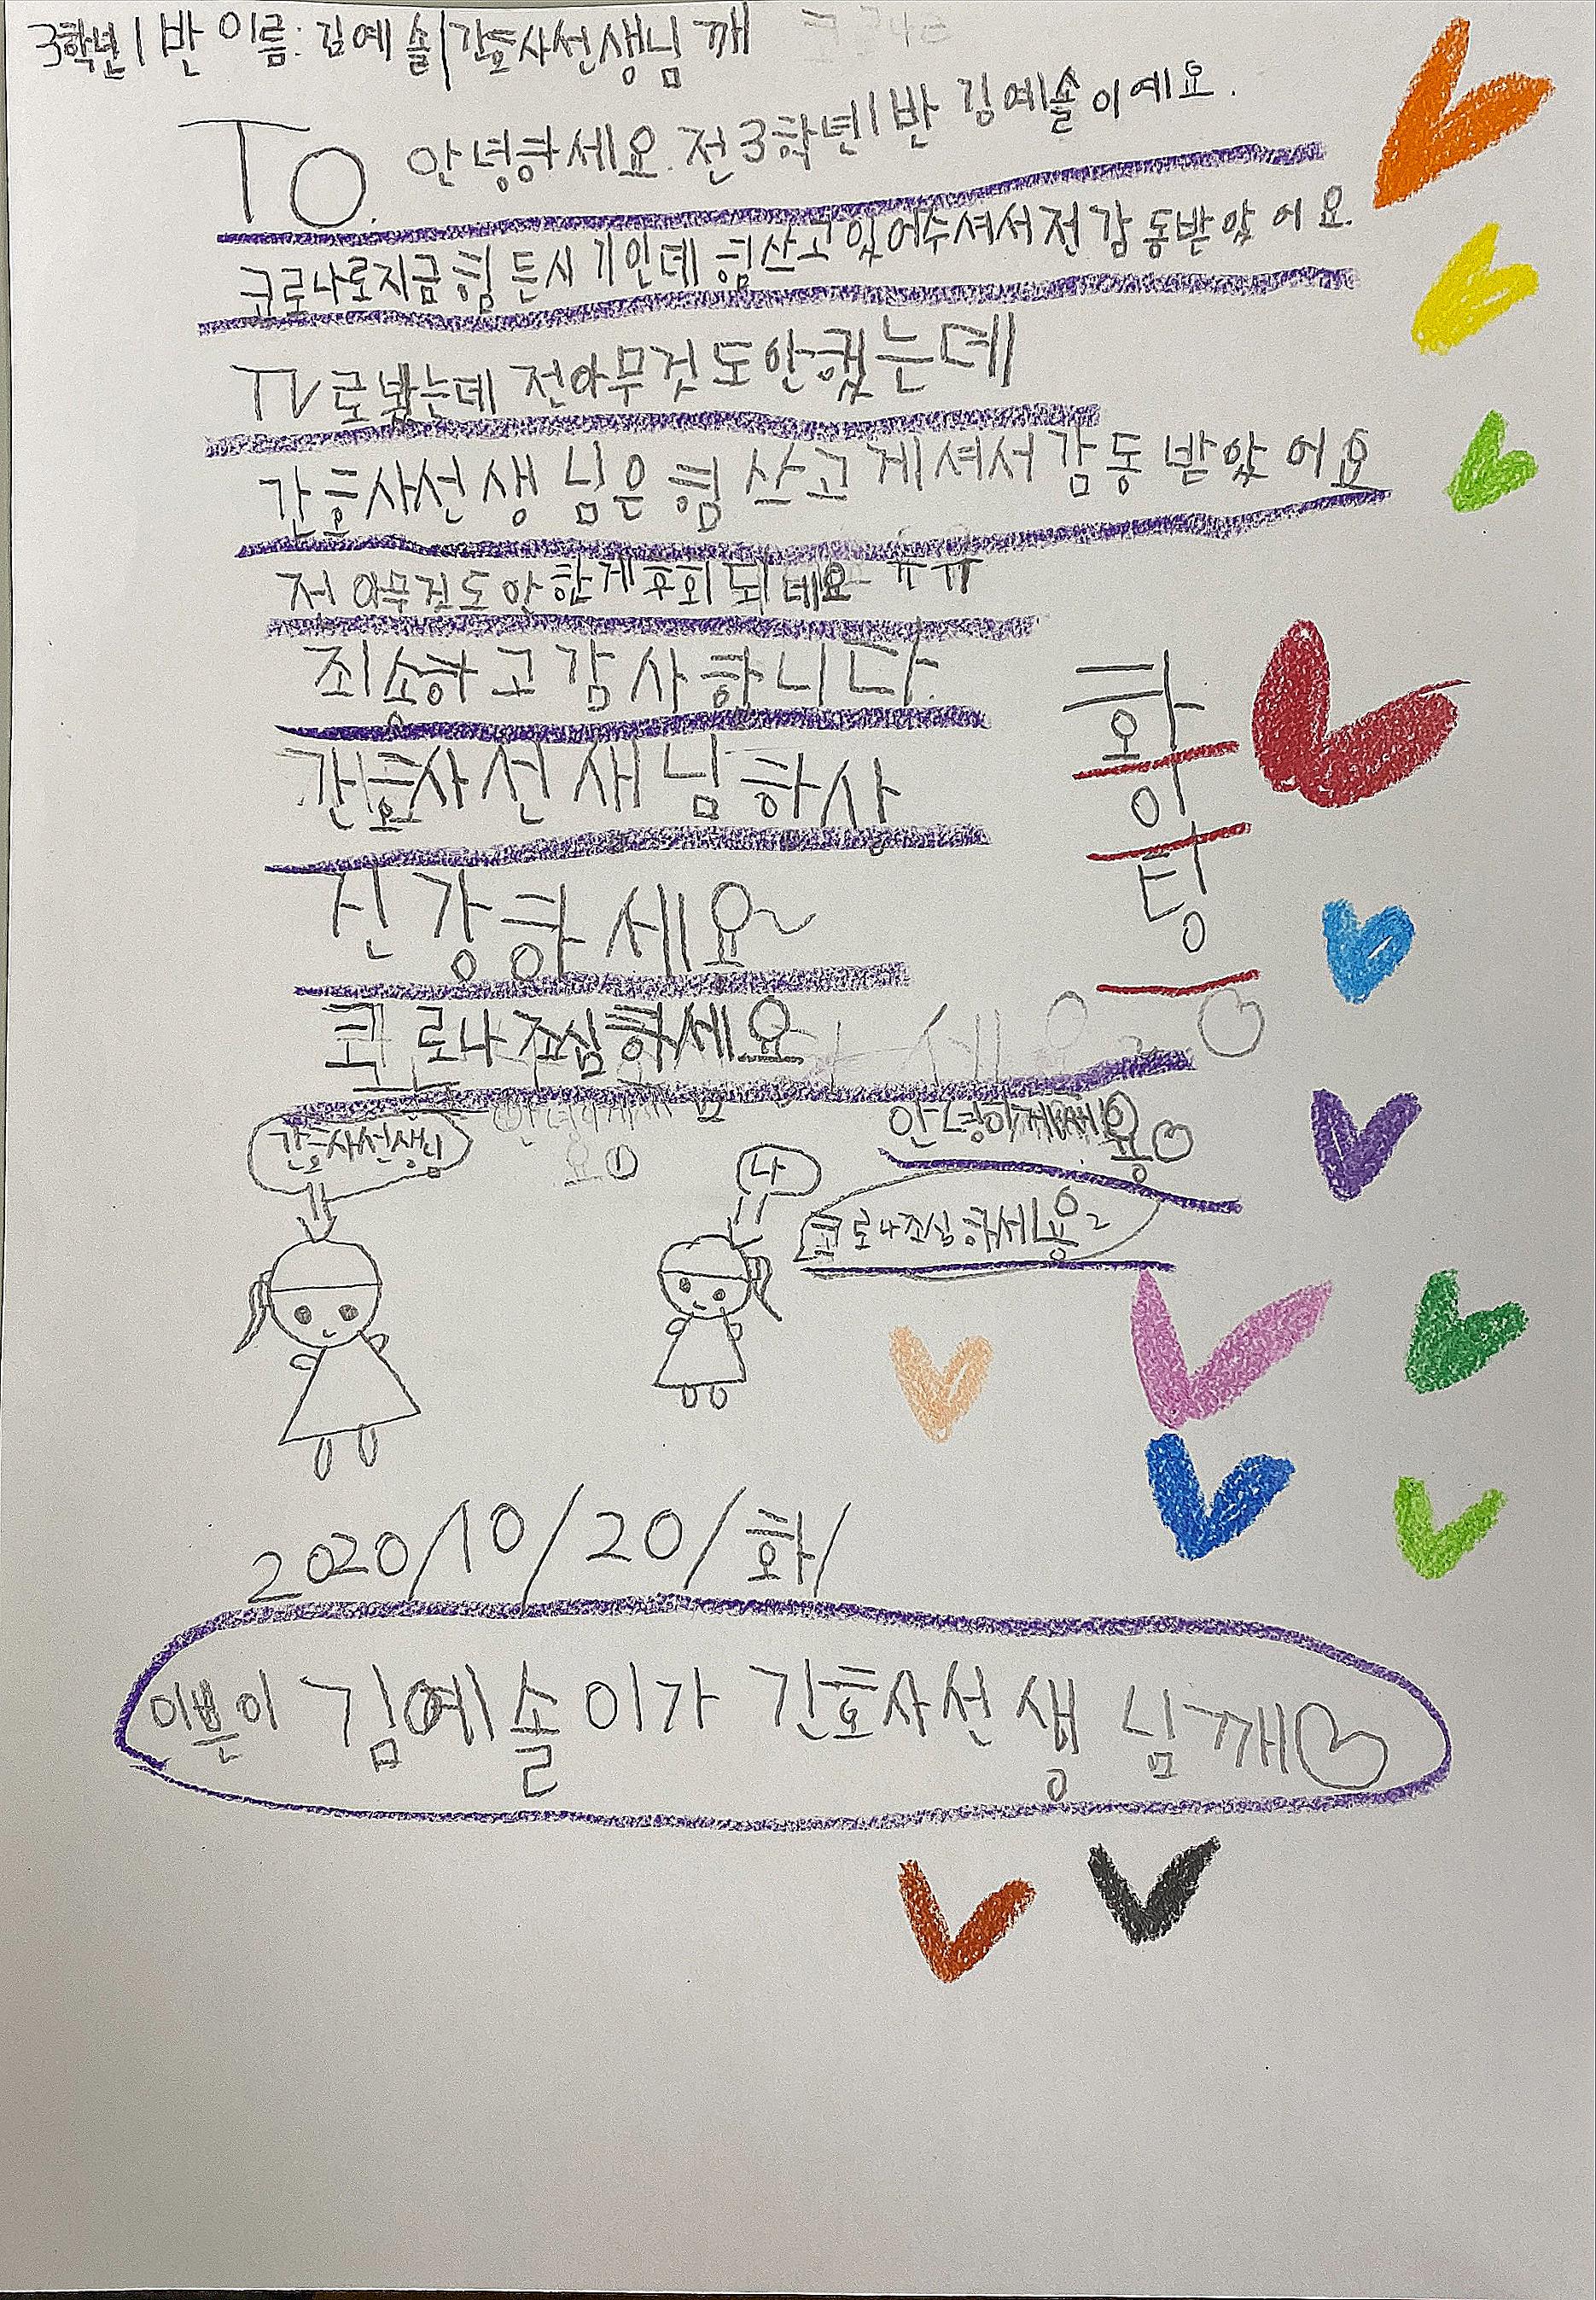 3학년 1반 이름: 김예솔 | 간호사선생님 깨
To. 안녕하세요. 전 3학년 1반 김예솔이예요.
코로나로 지금 힘든시기인데 힘쓰고 있어주셔서 전 감동받았어요.
TV로 봤는데 전 아무것도 안했는데
간호사선생님은 힘쓰고 계셔서 감동받았어요
전 아무것도 안한게 후회되데요 ㅠㅠ
죄송하고 감사합니다.
간호사선새님 항상
건강하세요~
코로나 조심하세요
화이팅
간호사선생님
나
안녕히계세용
코로나조심하세용~
2020/10/20/화/
이쁜이 김예솔이가 간호사선생님깨